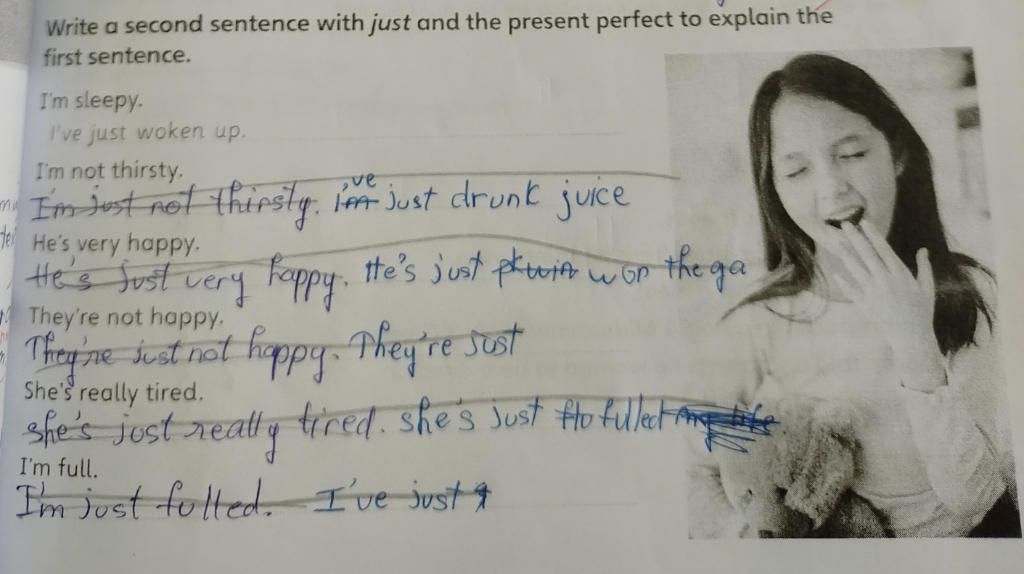 Write a second sentence with just and the present perfect to explain the
first sentence.
I'm sleepy.
I've just woken up.
I'm not thirsty.
I'm just not thirsty. i'm 've just drunk juice
He's very happy.
He's just very happy. He's just win won the ga
They're not happy.
They're just not happy. They're just
She's really tired.
she's just really tired. she's just
I'm full.
I'm just fulled. I've just